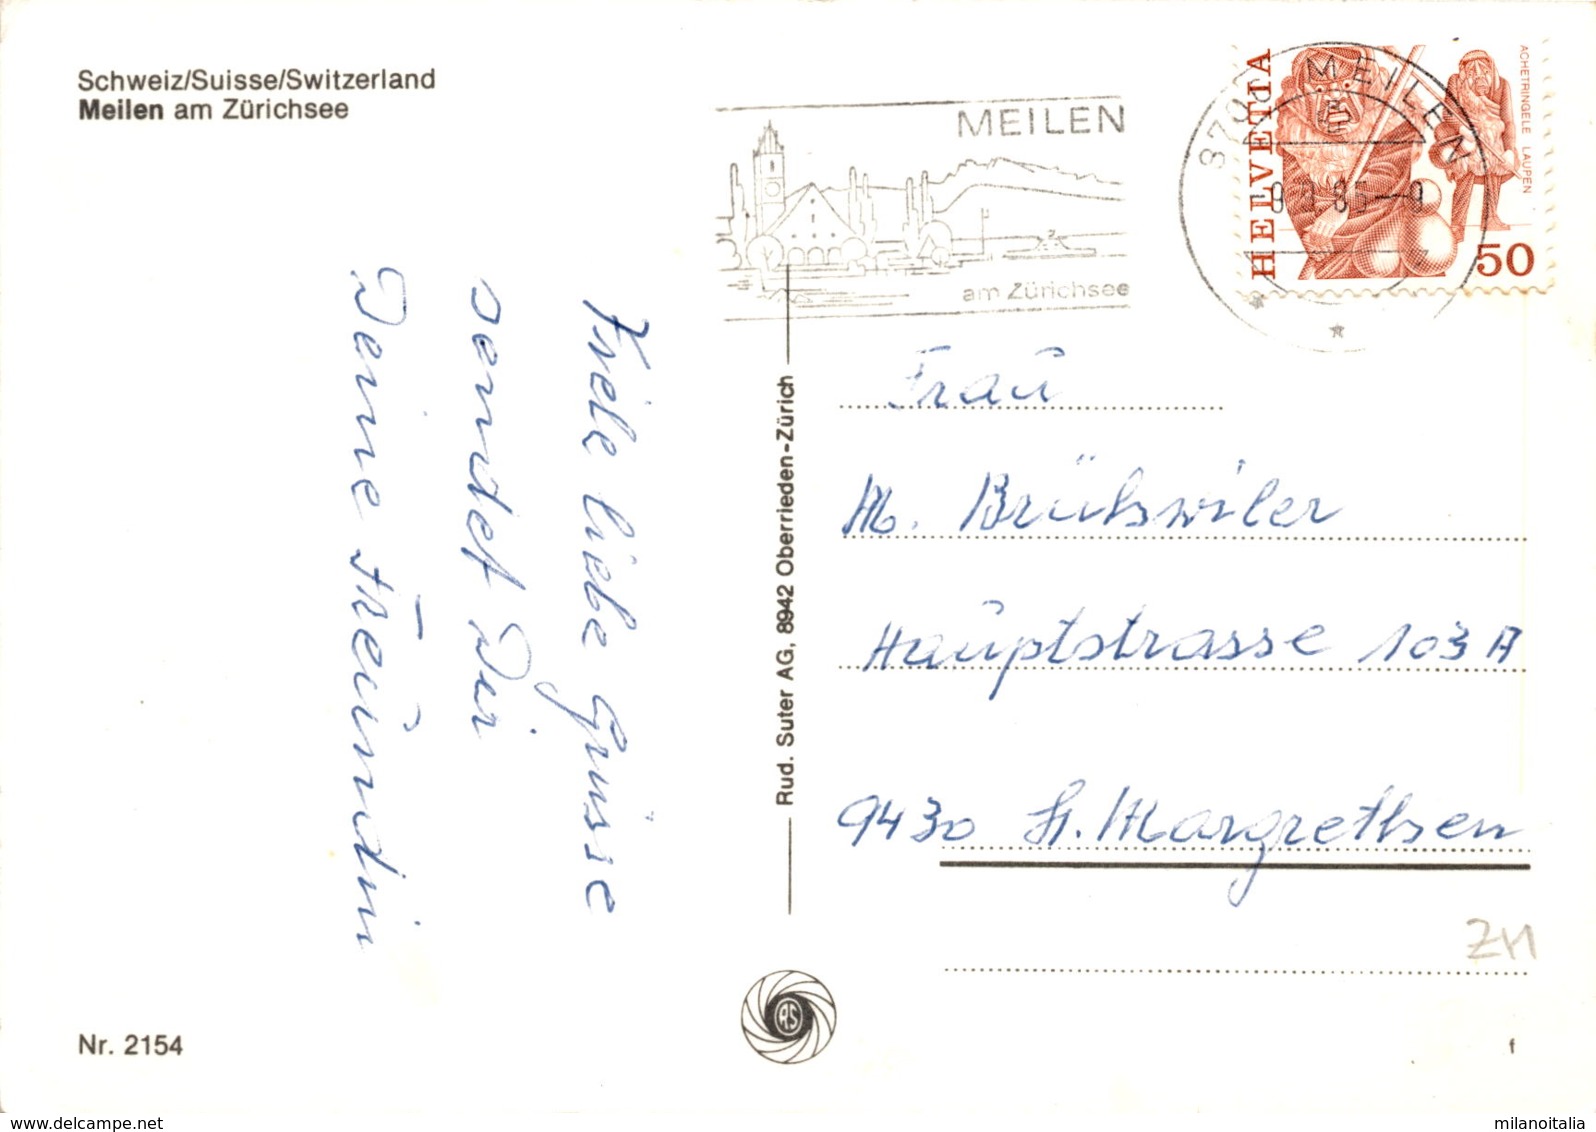 Schweiz/Suisse/Switzerland
Meilen am Zürichsee
MEILEN
am Zürichsee
8706 MEILEN
HELVETIA
ACHETRINGELE LAUPEN
50
Viele liebe Grüsse
sendet Dir
Deine Freundin
Rud. Suter AG, 8942 Oberrieden-Zürich
Frau
M. Brühwiler
Hauptstrasse 103 A
9430 St. Margrethen
ZH
RS
Nr. 2154
f
www.delcampe.net
milanoitalia